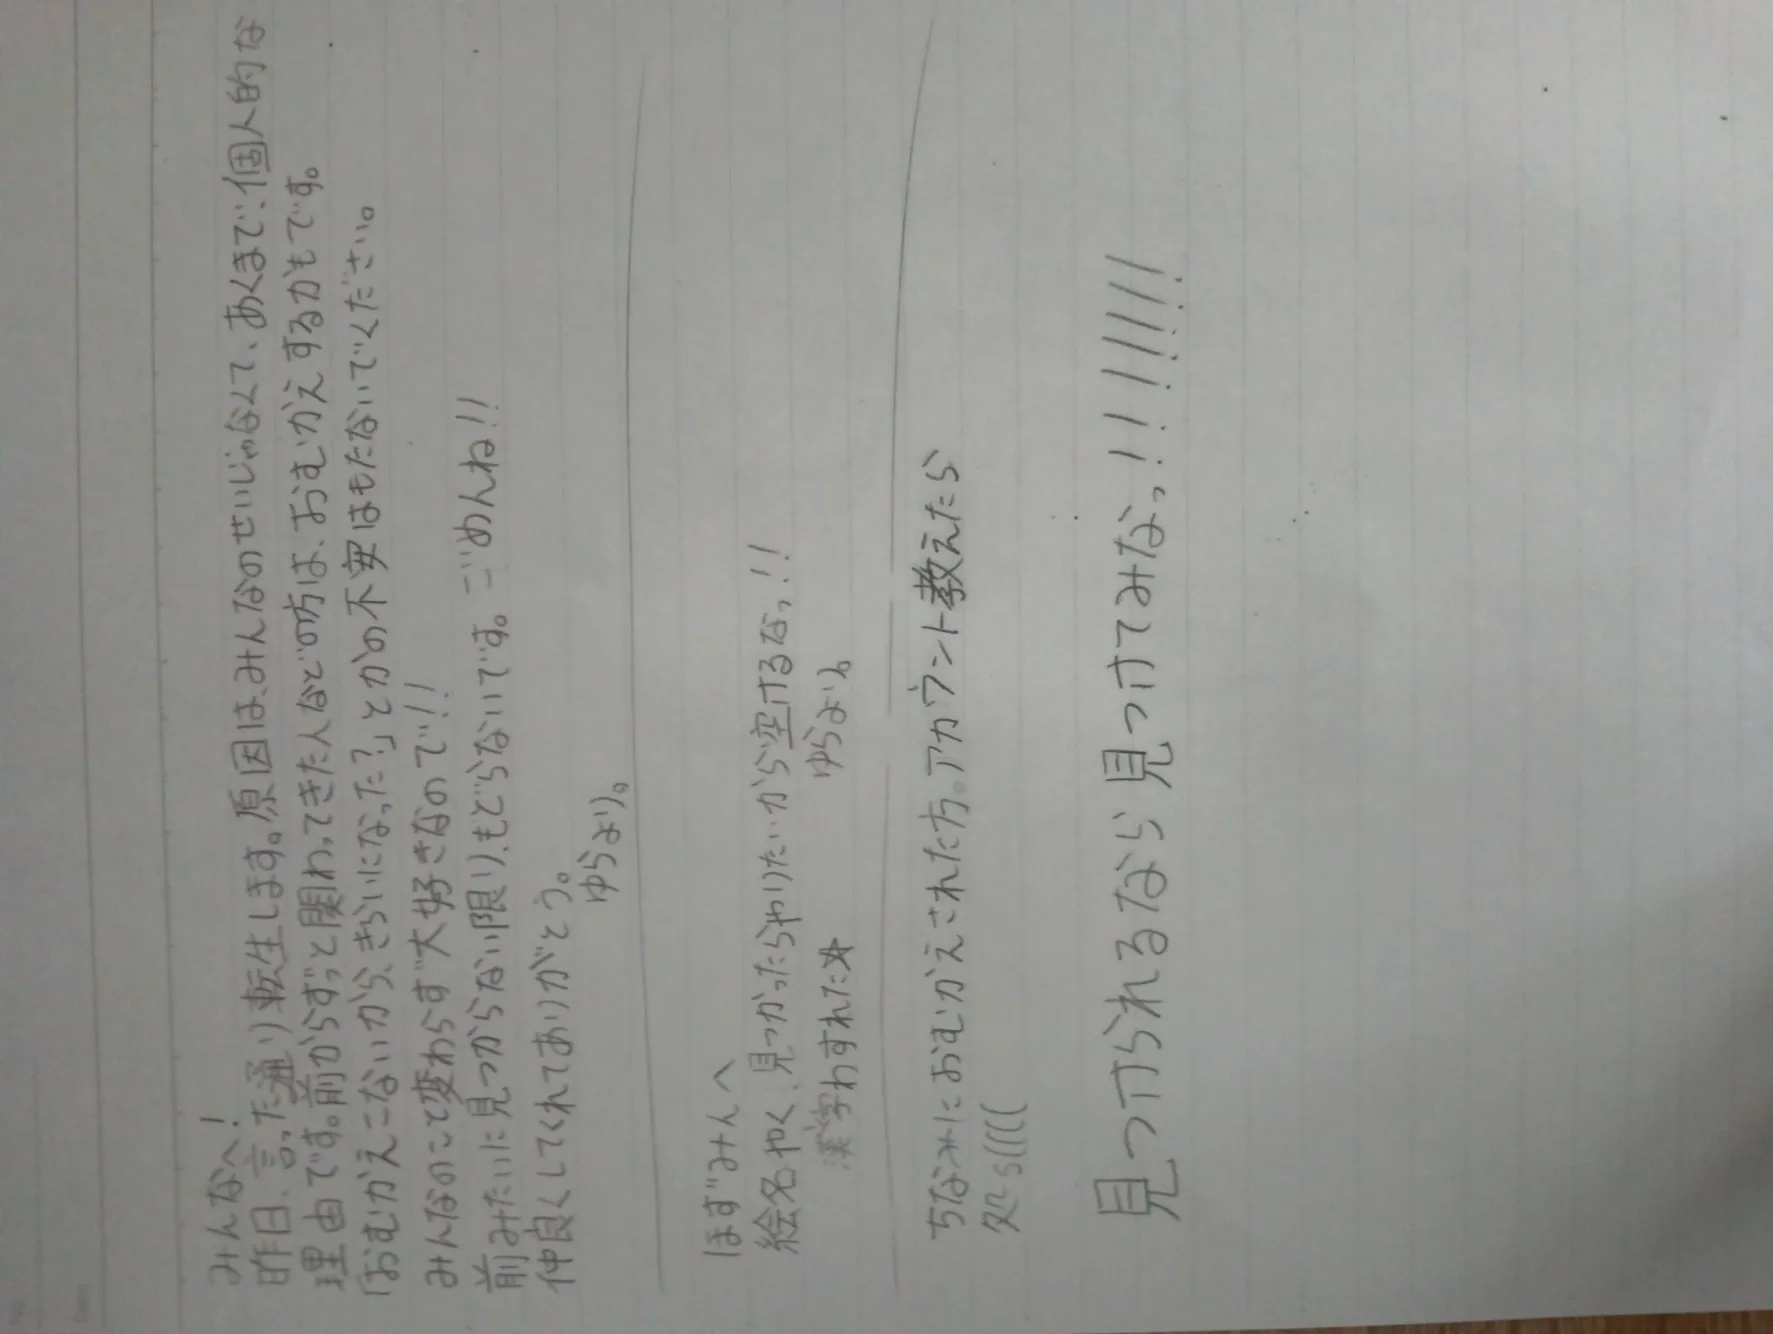 みんなへ!
昨日、言った通り転生します。原因は、みんなのせいじゃなくて、あくまで、個人的な
理由です。前からずっと関わってきた人などの方は、おむかえするかもです。
「おむかえこないから、きらいになった?」とかの不安はもたないでください。
みんなのこと変わらず大好きなので!!
前みたいに見つからない限り、もどらないです。ごめんね!!
仲良くしてくれてありがとう。
ゆらより。
ほずみんへ
絵名やく、見つかったらやりたいから空けるなっ!!
漢字わすれた☆
ゆらより。
ちなみにおむかえされた方。アカウント教えたら
処s((((
見つけられるなら見つけてみなっ!!!!!!!!